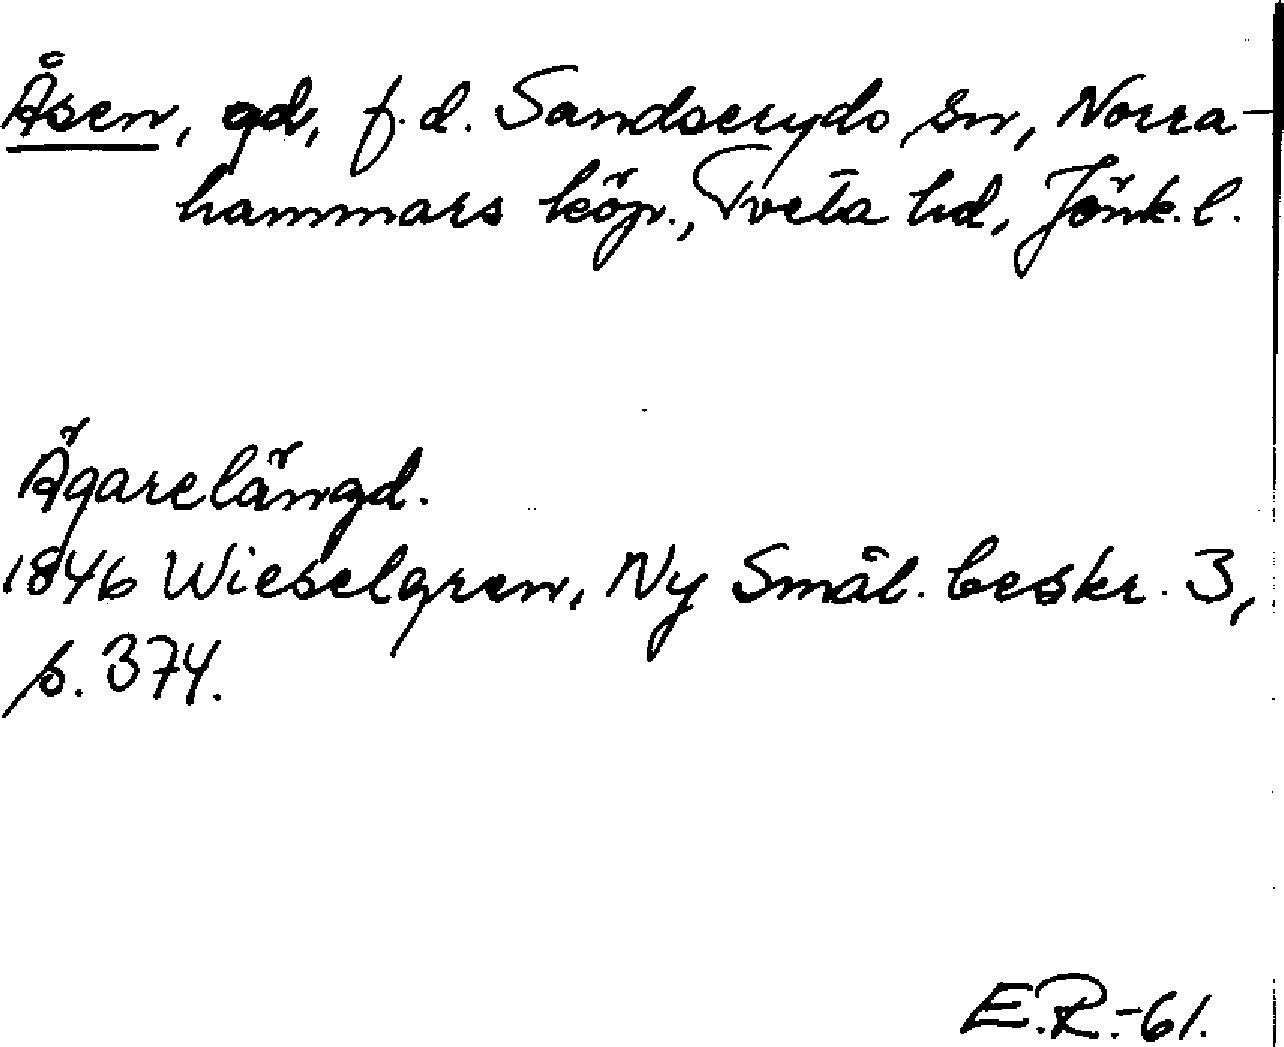 Åsen, gd, f.d. Sandseryds sn, Norra-
hammars köp., Tveta hd, Jönk. l.
Ägarelängd.
1846 Wieselgren, Ny Smål. beskr. 3,
s. 374.
E.R.-61.